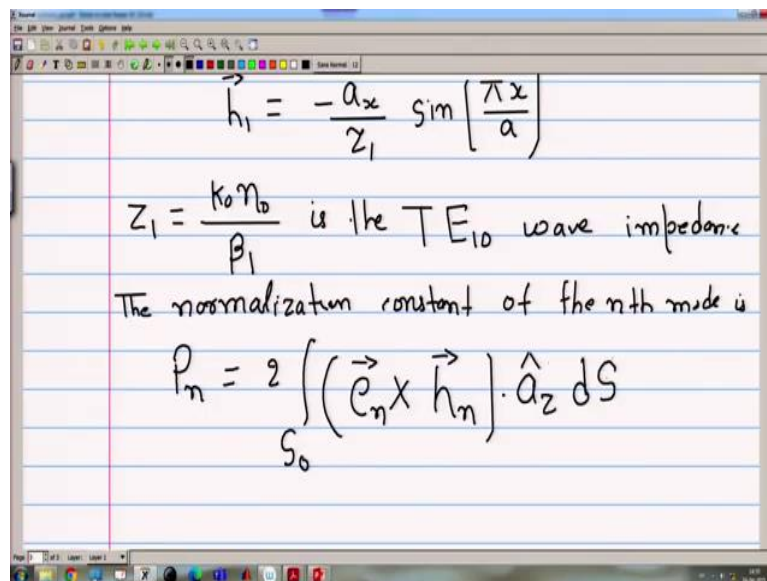 File Edit View Journal Tools Options Help
Sans Normal 12
h⃗₁ = − aₓ/Z₁ sin [πx/a]
Z₁ = k₀η₀/β₁ is the TE₁₀ wave impedance
The normalization constant of the nth mode is
Pₙ = 2 ∫_S₀ (e⃗ₙ × h⃗ₙ) · â_z dS
Page 3 of 3 Layer: Layer 1